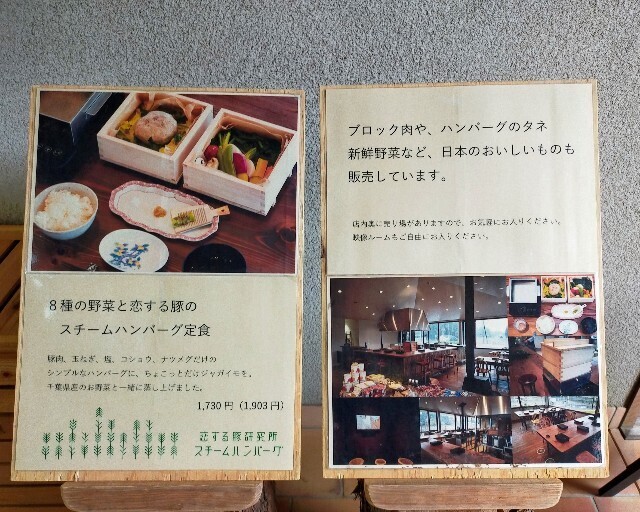 8種の野菜と恋する豚の
スチームハンバーグ定食
豚肉、玉ねぎ、塩、コショウ、ナツメグだけの
シンプルなハンバーグに、ちょこっとだけジャガイモを。
千葉県産のお野菜と一緒に蒸し上げました。
1,730円(1,903円)
恋する豚研究所
スチームハンバーグ
ブロック肉や、ハンバーグのタネ
新鮮野菜など、日本のおいしいものも
販売しています。
店内奥に売り場がありますので、お気軽にお入りください。
映像ルームもご自由にお入りください。